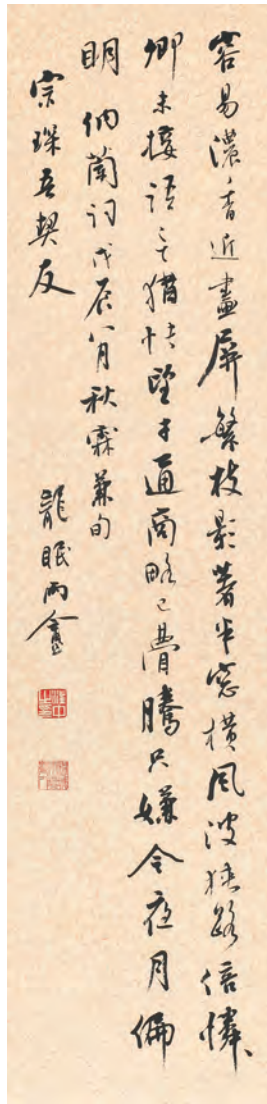 容易濃香近畫屏繁枝影著半窓橫風波狹路倍憐
卿未接語言猶悵望才通商略已瞢騰只嫌今夜月偏
明 納蘭詞戊辰八月秋霖兼旬
宗琛吾契友 龍眠丙盦